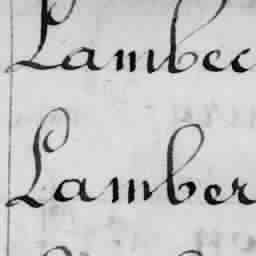 Lambec
Lamber